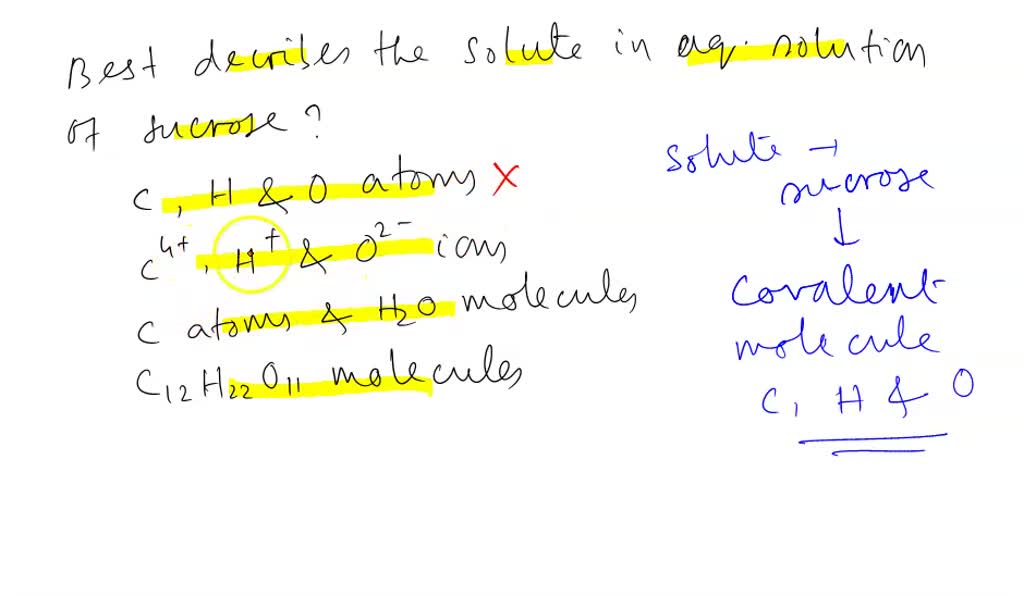 Best decribes the solute in aq. solution
of sucrose?
C, H & O atoms X
C⁴⁺, H⁺ & O²⁻ ions
C atoms & H₂O molecules
C₁₂H₂₂O₁₁ molecules
Solute →
sucrose
↓
Covalent
molecule
C, H & O